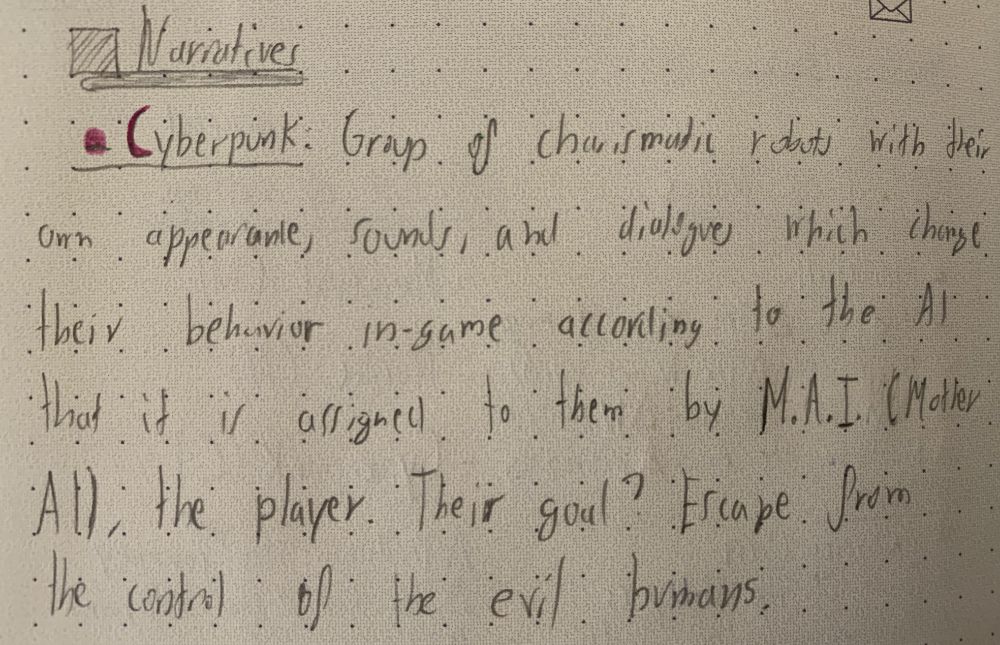 Narratives
Cyberpunk: Group of charismatic robots with their
own appearance, sounds, and dialogues which change
their behavior in-game according to the AI
that it is assigned to them by M.A.I. (Mother
AI), the player. Their goal? Escape from
the control of the evil humans.